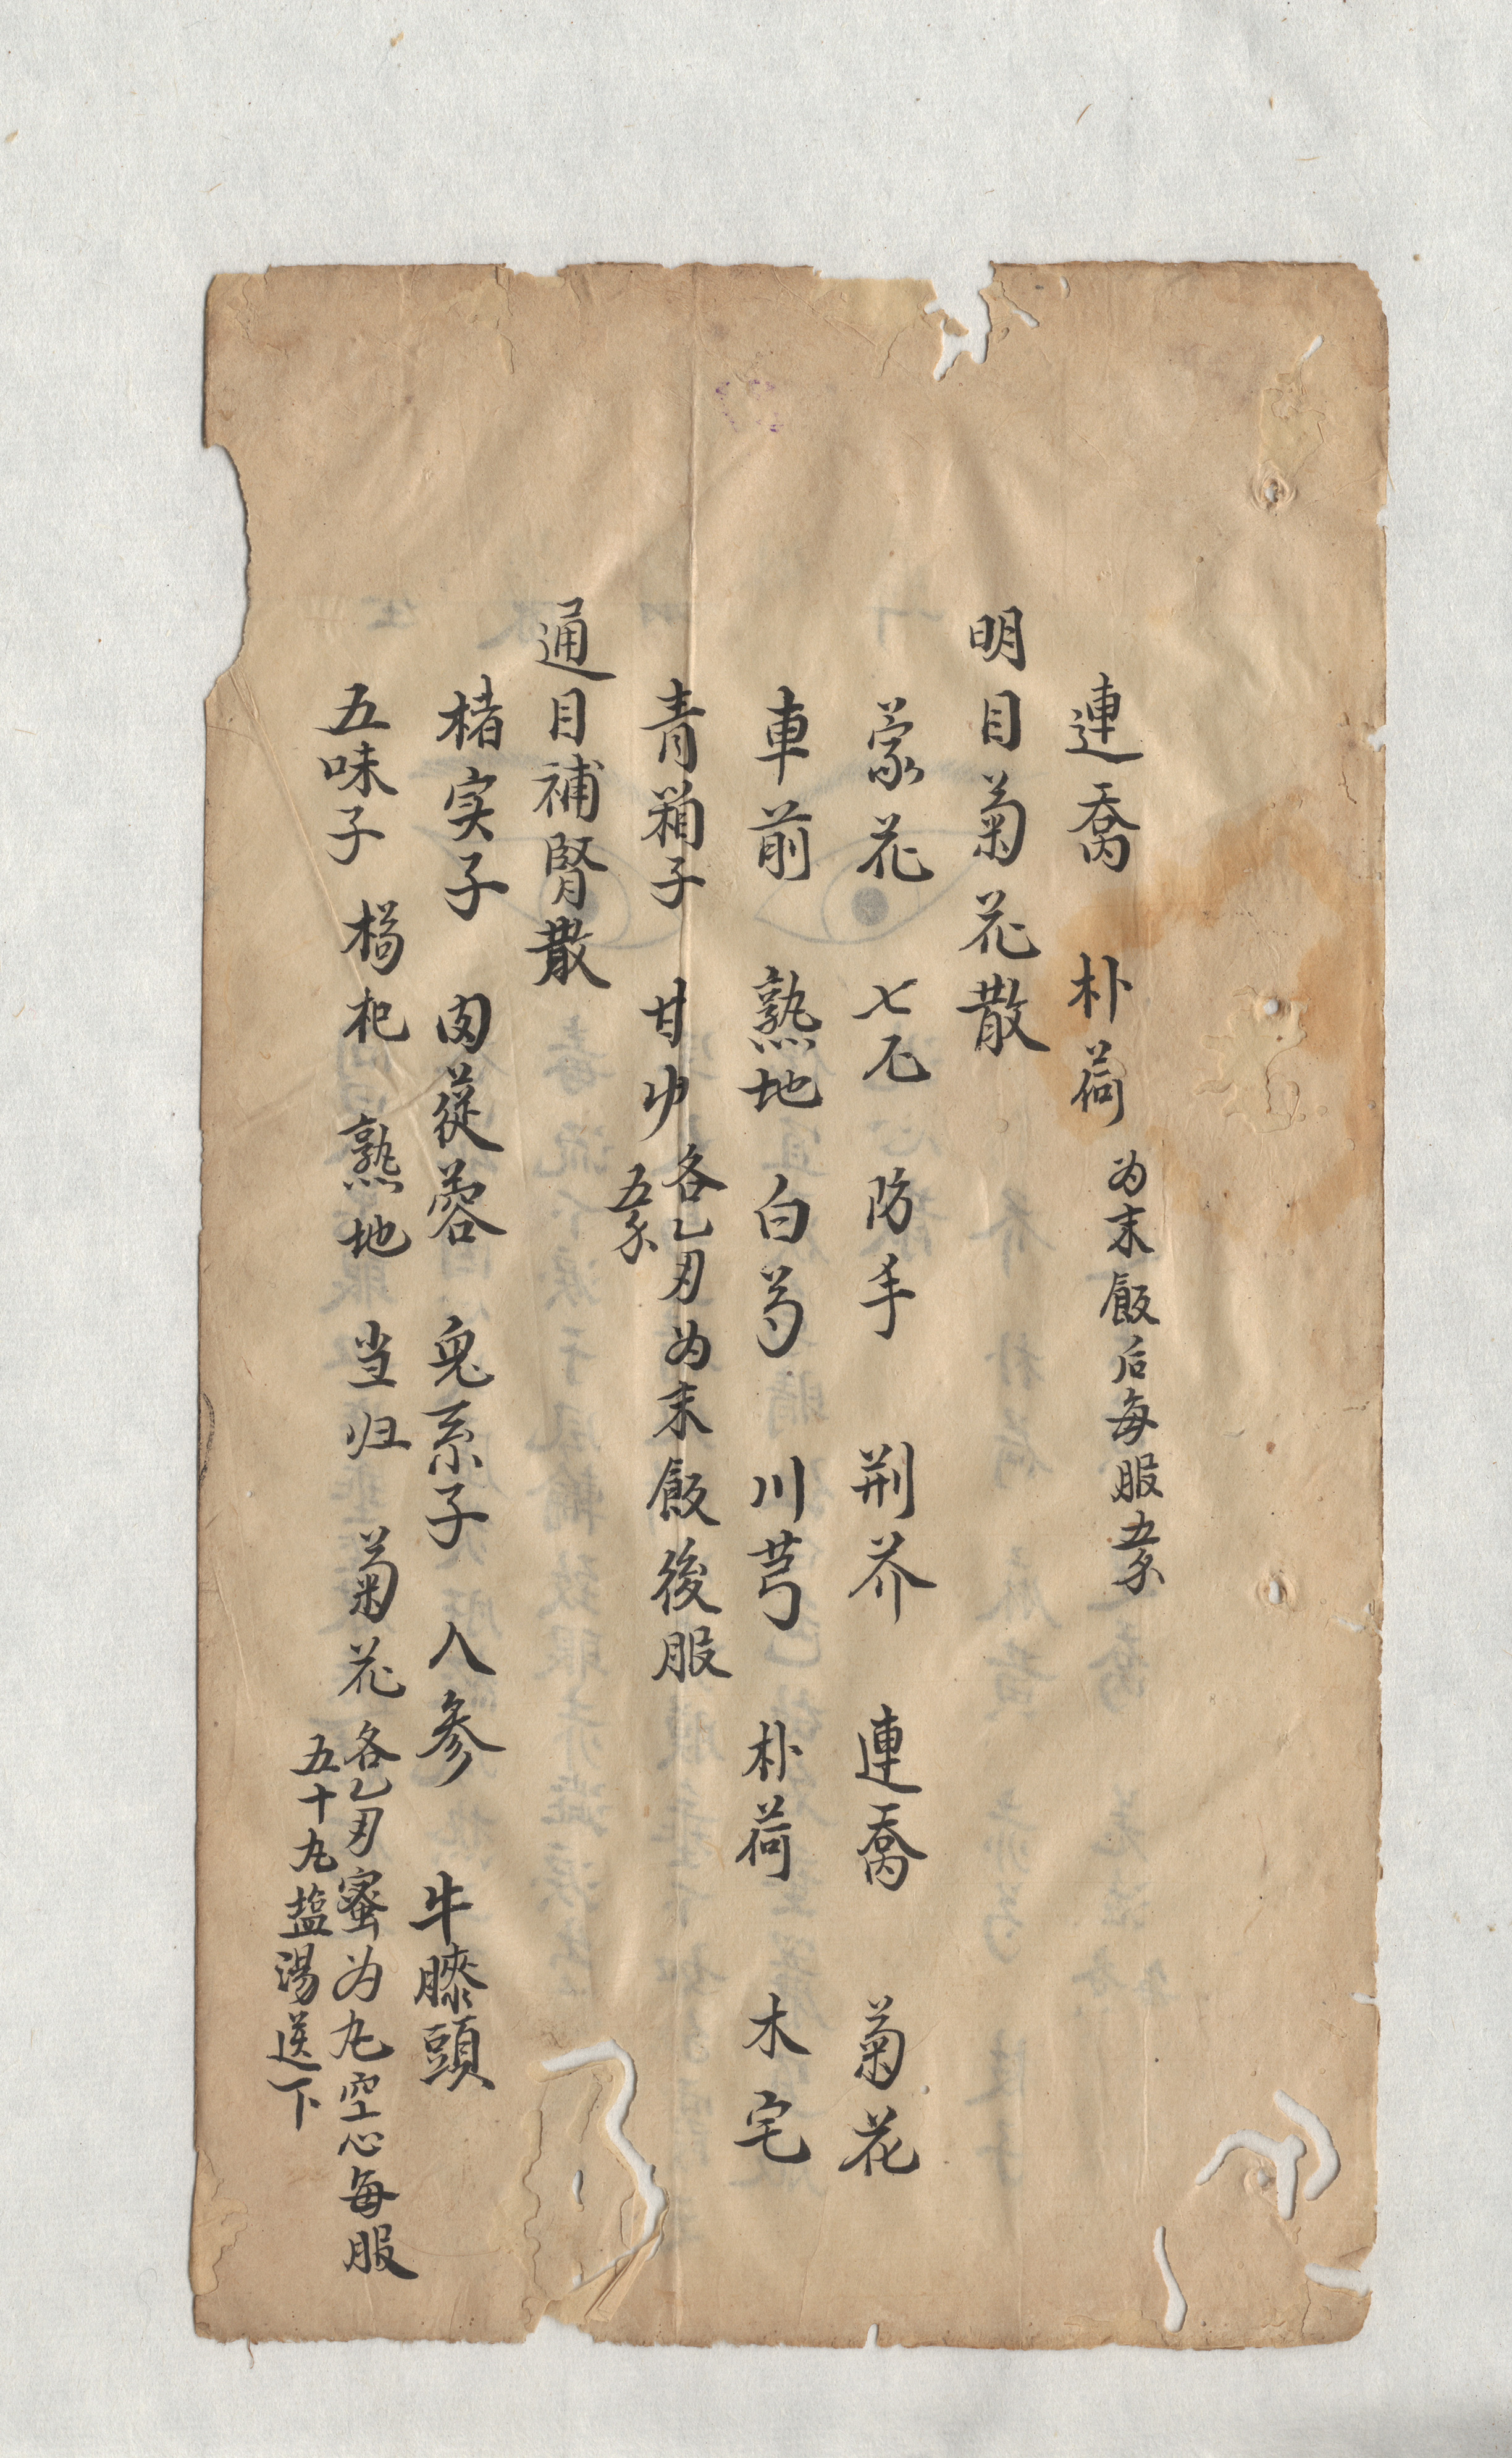 連喬 朴荷 为末飯后每服五分
明目菊花散
蒙花 七石 防手 荆芥 連喬 菊花
車前 熟地 白芍 川芎 朴荷 木宅
青葙子 甘中 各乙刄为末飯後服
五分
通目補腎散
楮实子 肉蓯蓉 兔系子 人參 牛膝頭
五味子 枸杞 熟地 当归 菊花 各乙刄蜜为丸空心每服
五十丸盐湯送下